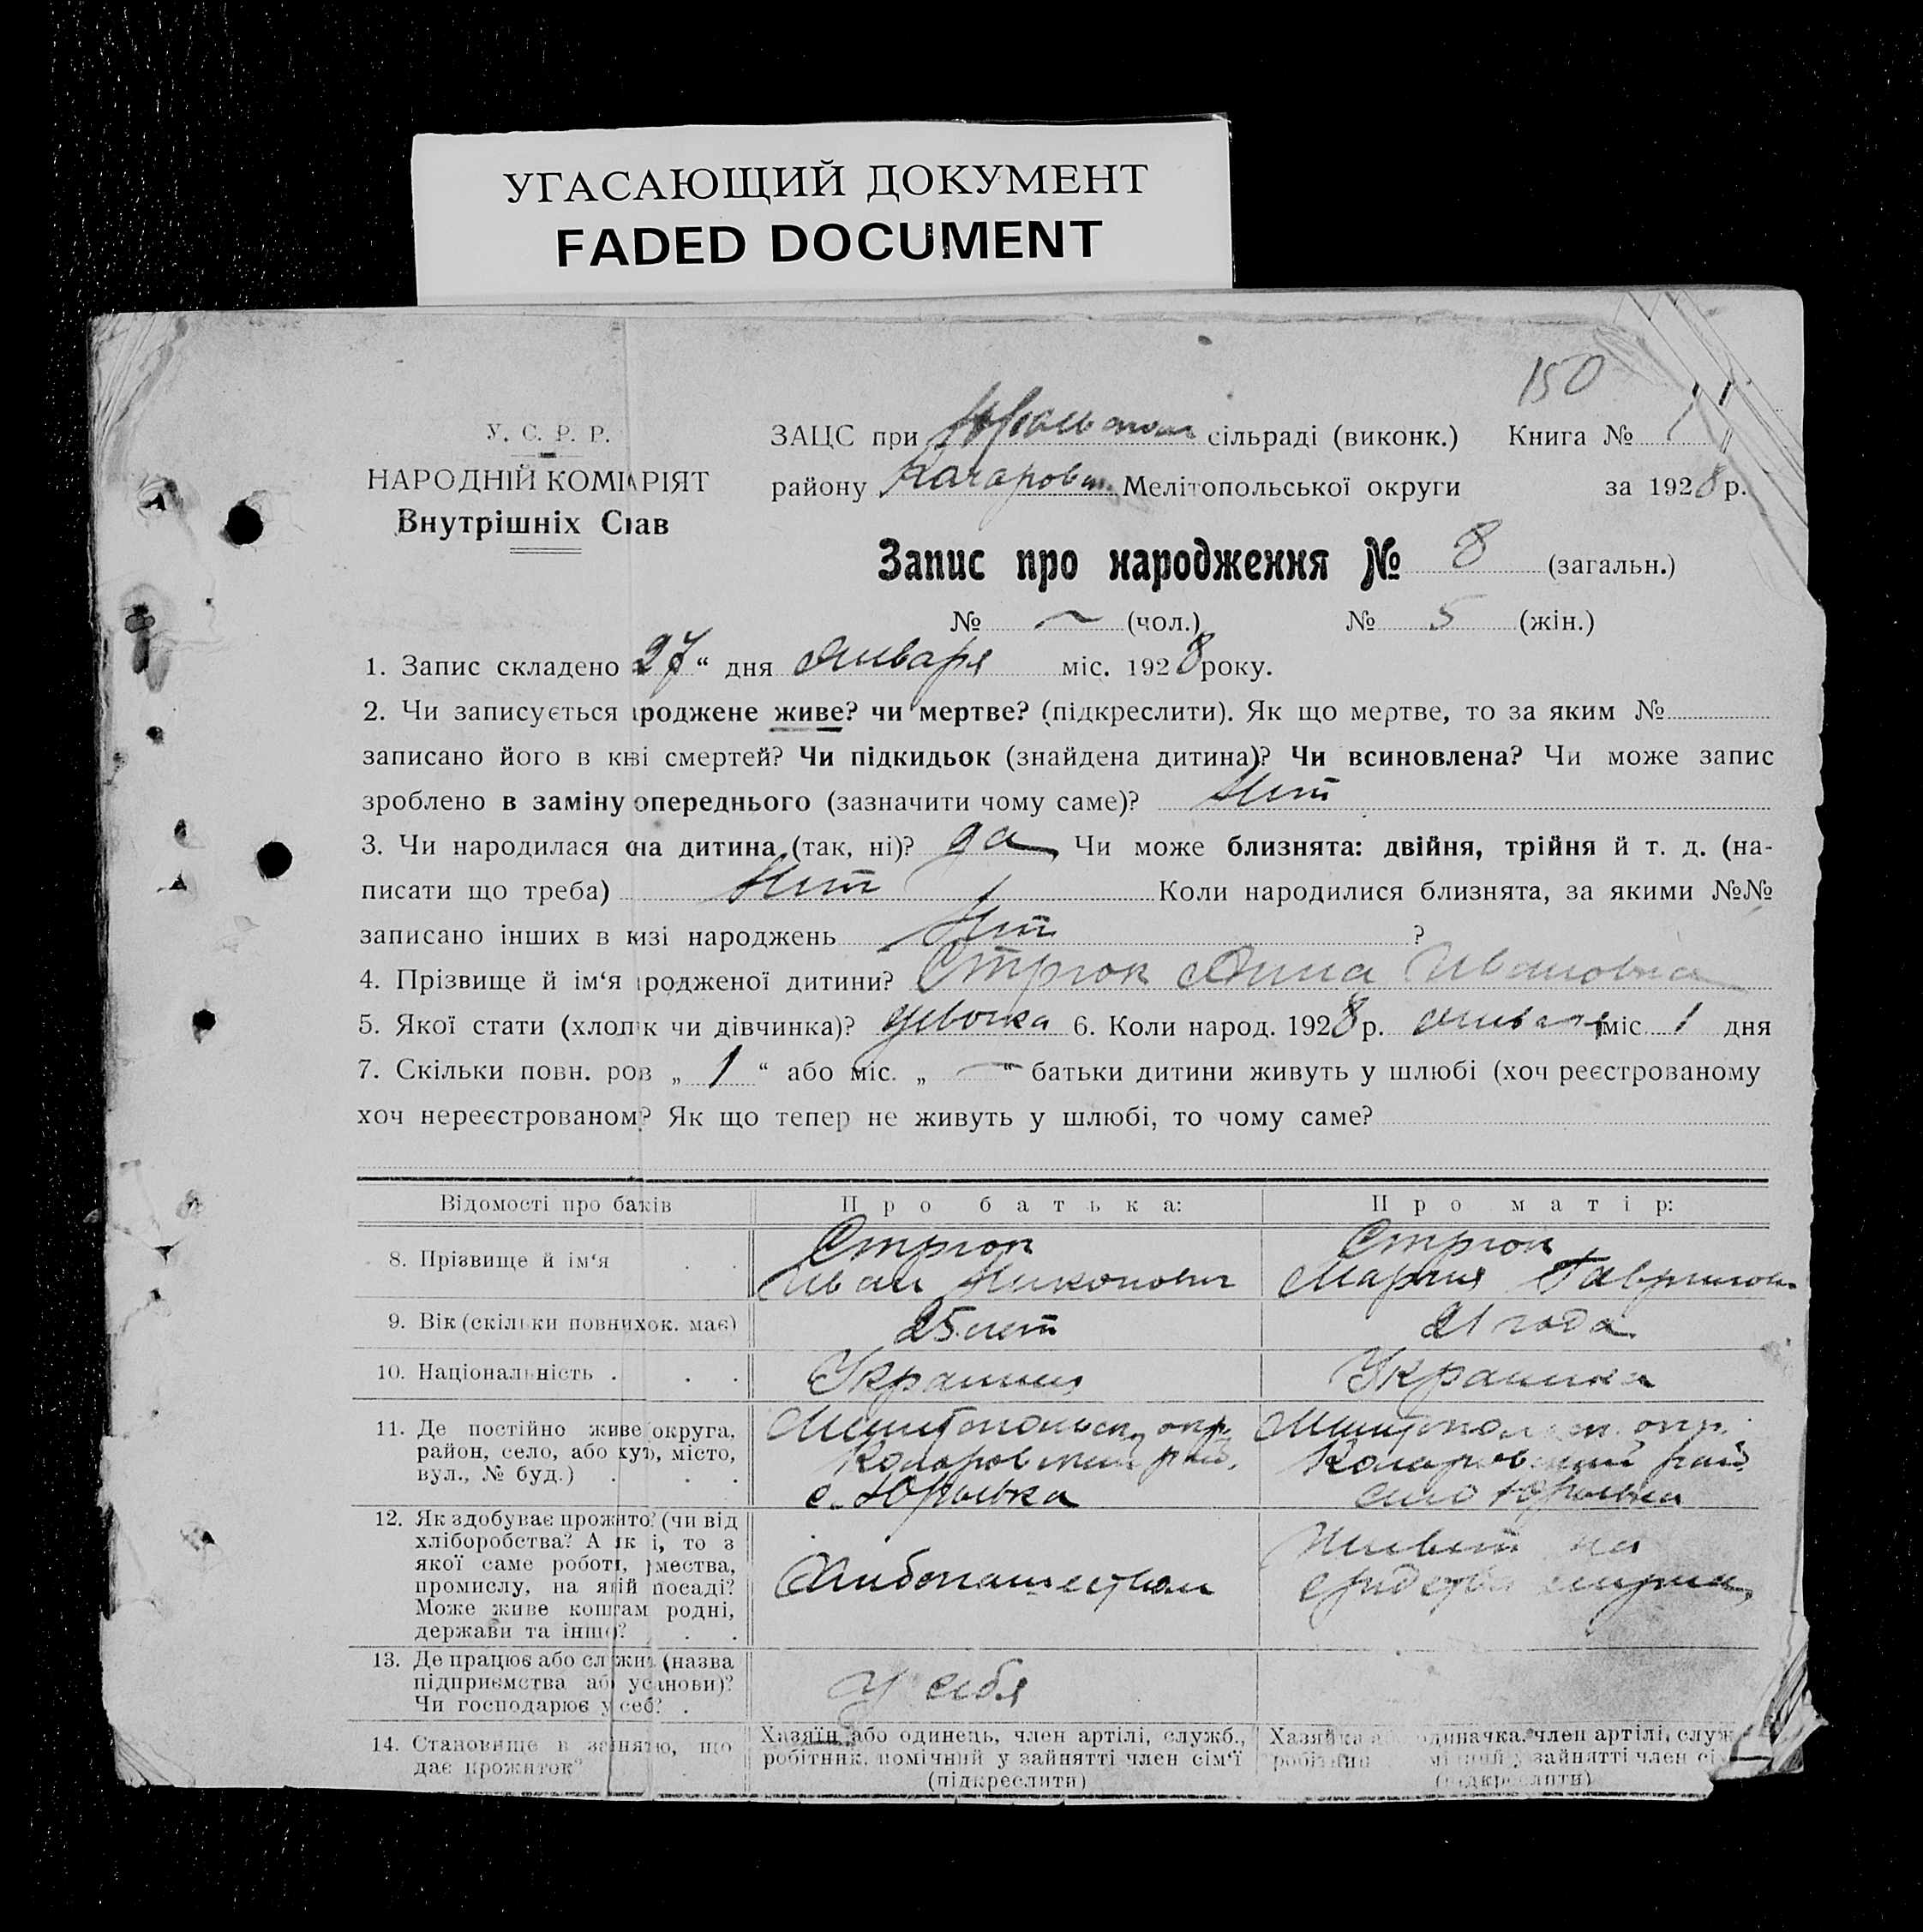 УГАСАЮЩИЙ ДОКУМЕНТ
FADED DOCUMENT
150
У. С. Р. Р.
НАРОДНІЙ КОМІАРІЯТ
Внутрішніх Сав
ЗАЦС при сільраді (виконк.) Книга № 1
району Мелітопольської округи за 1928 р.
Запис про народження № 8 (загальн.)
№ — (чол.) № 5 (жін.)
1. Запис складено 27“ дня Января міс. 1928 року.
2. Чи записується роджене живе? чи мертве? (підкреслити). Як що мертве, то за яким №
записано його в кні смертей? Чи підкидьок (знайдена дитина)? Чи всиновлена? Чи може запис
зроблено в заміну опереднього (зазначити чому саме)? Нет
3. Чи народилася она дитина (так, ні)? да Чи може близнята: двійня, трійня й т. д. (на-
писати що треба) Нет Коли народилися близнята, за якими №№
записано інших в кизі народжень Нет ?
4. Прізвище й ім‘я родженої дитини? Стрюк Анна Ивановна
5. Якої стати (хлопік чи дівчинка)? девочка 6. Коли народ. 1928 р. января міс. 1 дня
7. Скільки повн. ров „ 1 “ або міс. „ — “ батьки дитини живуть у шлюбі (хоч реєстрованому
хоч нереєстрованом? Як що тепер не живуть у шлюбі, то чому саме?
Відомості про баків Про батька: Про матір:
8. Прізвище й ім‘я Стрюк Иван Никонович Стрюк Мария
9. Вік (скільки повних ок. має) 25 лет 21 года
10. Національність Украинец Украинка
11. Де постійно живе округа, Мелитопольск. окр. Мелитопольск. окр.
район, село, або хут, місто, Коларовский рай. Коларовский рай
вул., № буд.) с. Юрьевка село Юрьевка
12. Як здобуває прожито? (чи від
хліборобства? А як і, то з
якої саме роботі, мества, Хлебопашеством Живет на
промислу, на якій посаді? средства
Може живе коштам родні,
держави та іншо?
13. Де працює або служи (назва
підприємства аб установи)? у себя
Чи господарює у себ?
14. Становище в занятю, що Хазяїн або одинець, член артілі, служб., Хазяйка одиначка член артілі, служ
дає прожиток? робітник, помічний у зайнятті член сім‘ї у зайнятті член сі
(підкреслити) (підкреслити)